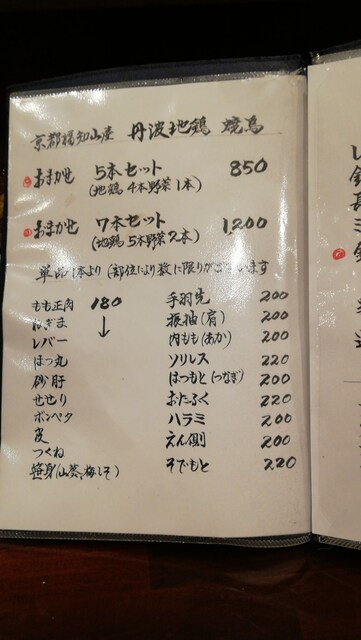 京都福知山産 丹波地鶏 焼鳥
おまかせ 5本セット 850
(地鶏4本野菜1本)
おまかせ 7本セット 1200
(地鶏5本野菜2本)
単品1本より(部位により数に限りがございます
もも正肉 180 手羽先 200
ねぎま 振袖(肩) 200
レバー 内もも(あか) 200
ほつ丸 ソリレス 220
砂肝 はつもと(つなぎ) 200
せせり おたふく 220
ボンペタ ハラミ 200
皮 えん側 200
つくね そでもと 220
笹身(山葵、梅しそ)